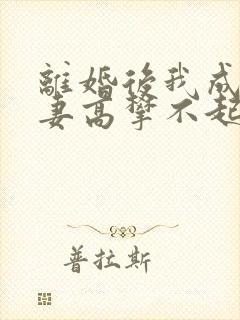 離婚後我成
妻高攀不起
普拉斯